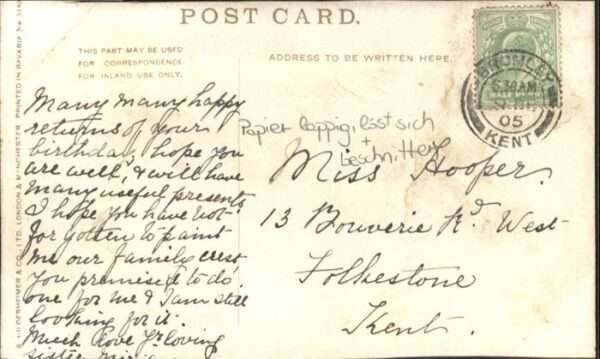 POST CARD.
THIS PART MAY BE USED
FOR CORRESPONDENCE
FOR INLAND USE ONLY.
ADDRESS TO BE WRITTEN HERE.
BROMLEY
AM
05
KENT
Many many happy
returns of your
birthday, hope you
are well, & will have
many useful presents
I hope you have not
forgotten to paint
me our family crest
you promised to do
one for me & I am still
looking for it.
Much love Yr loving
sister
Papier lappig, löst sich
+ beschnitten
Miss Hooper.
13 Bouverie Rd West
Folkestone
Kent.
HILDESHEIMER & CO., LTD. LONDON & MANCHESTER. PRINTED IN BAVARIA No